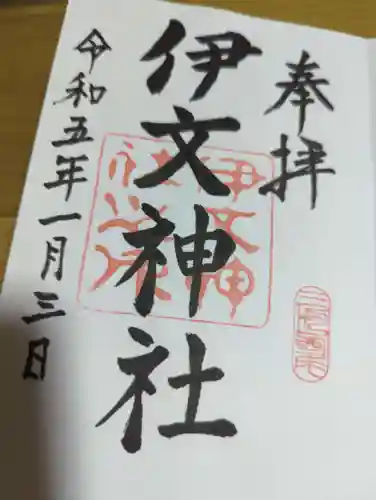 奉拝
伊文神社
令和五年一月三日